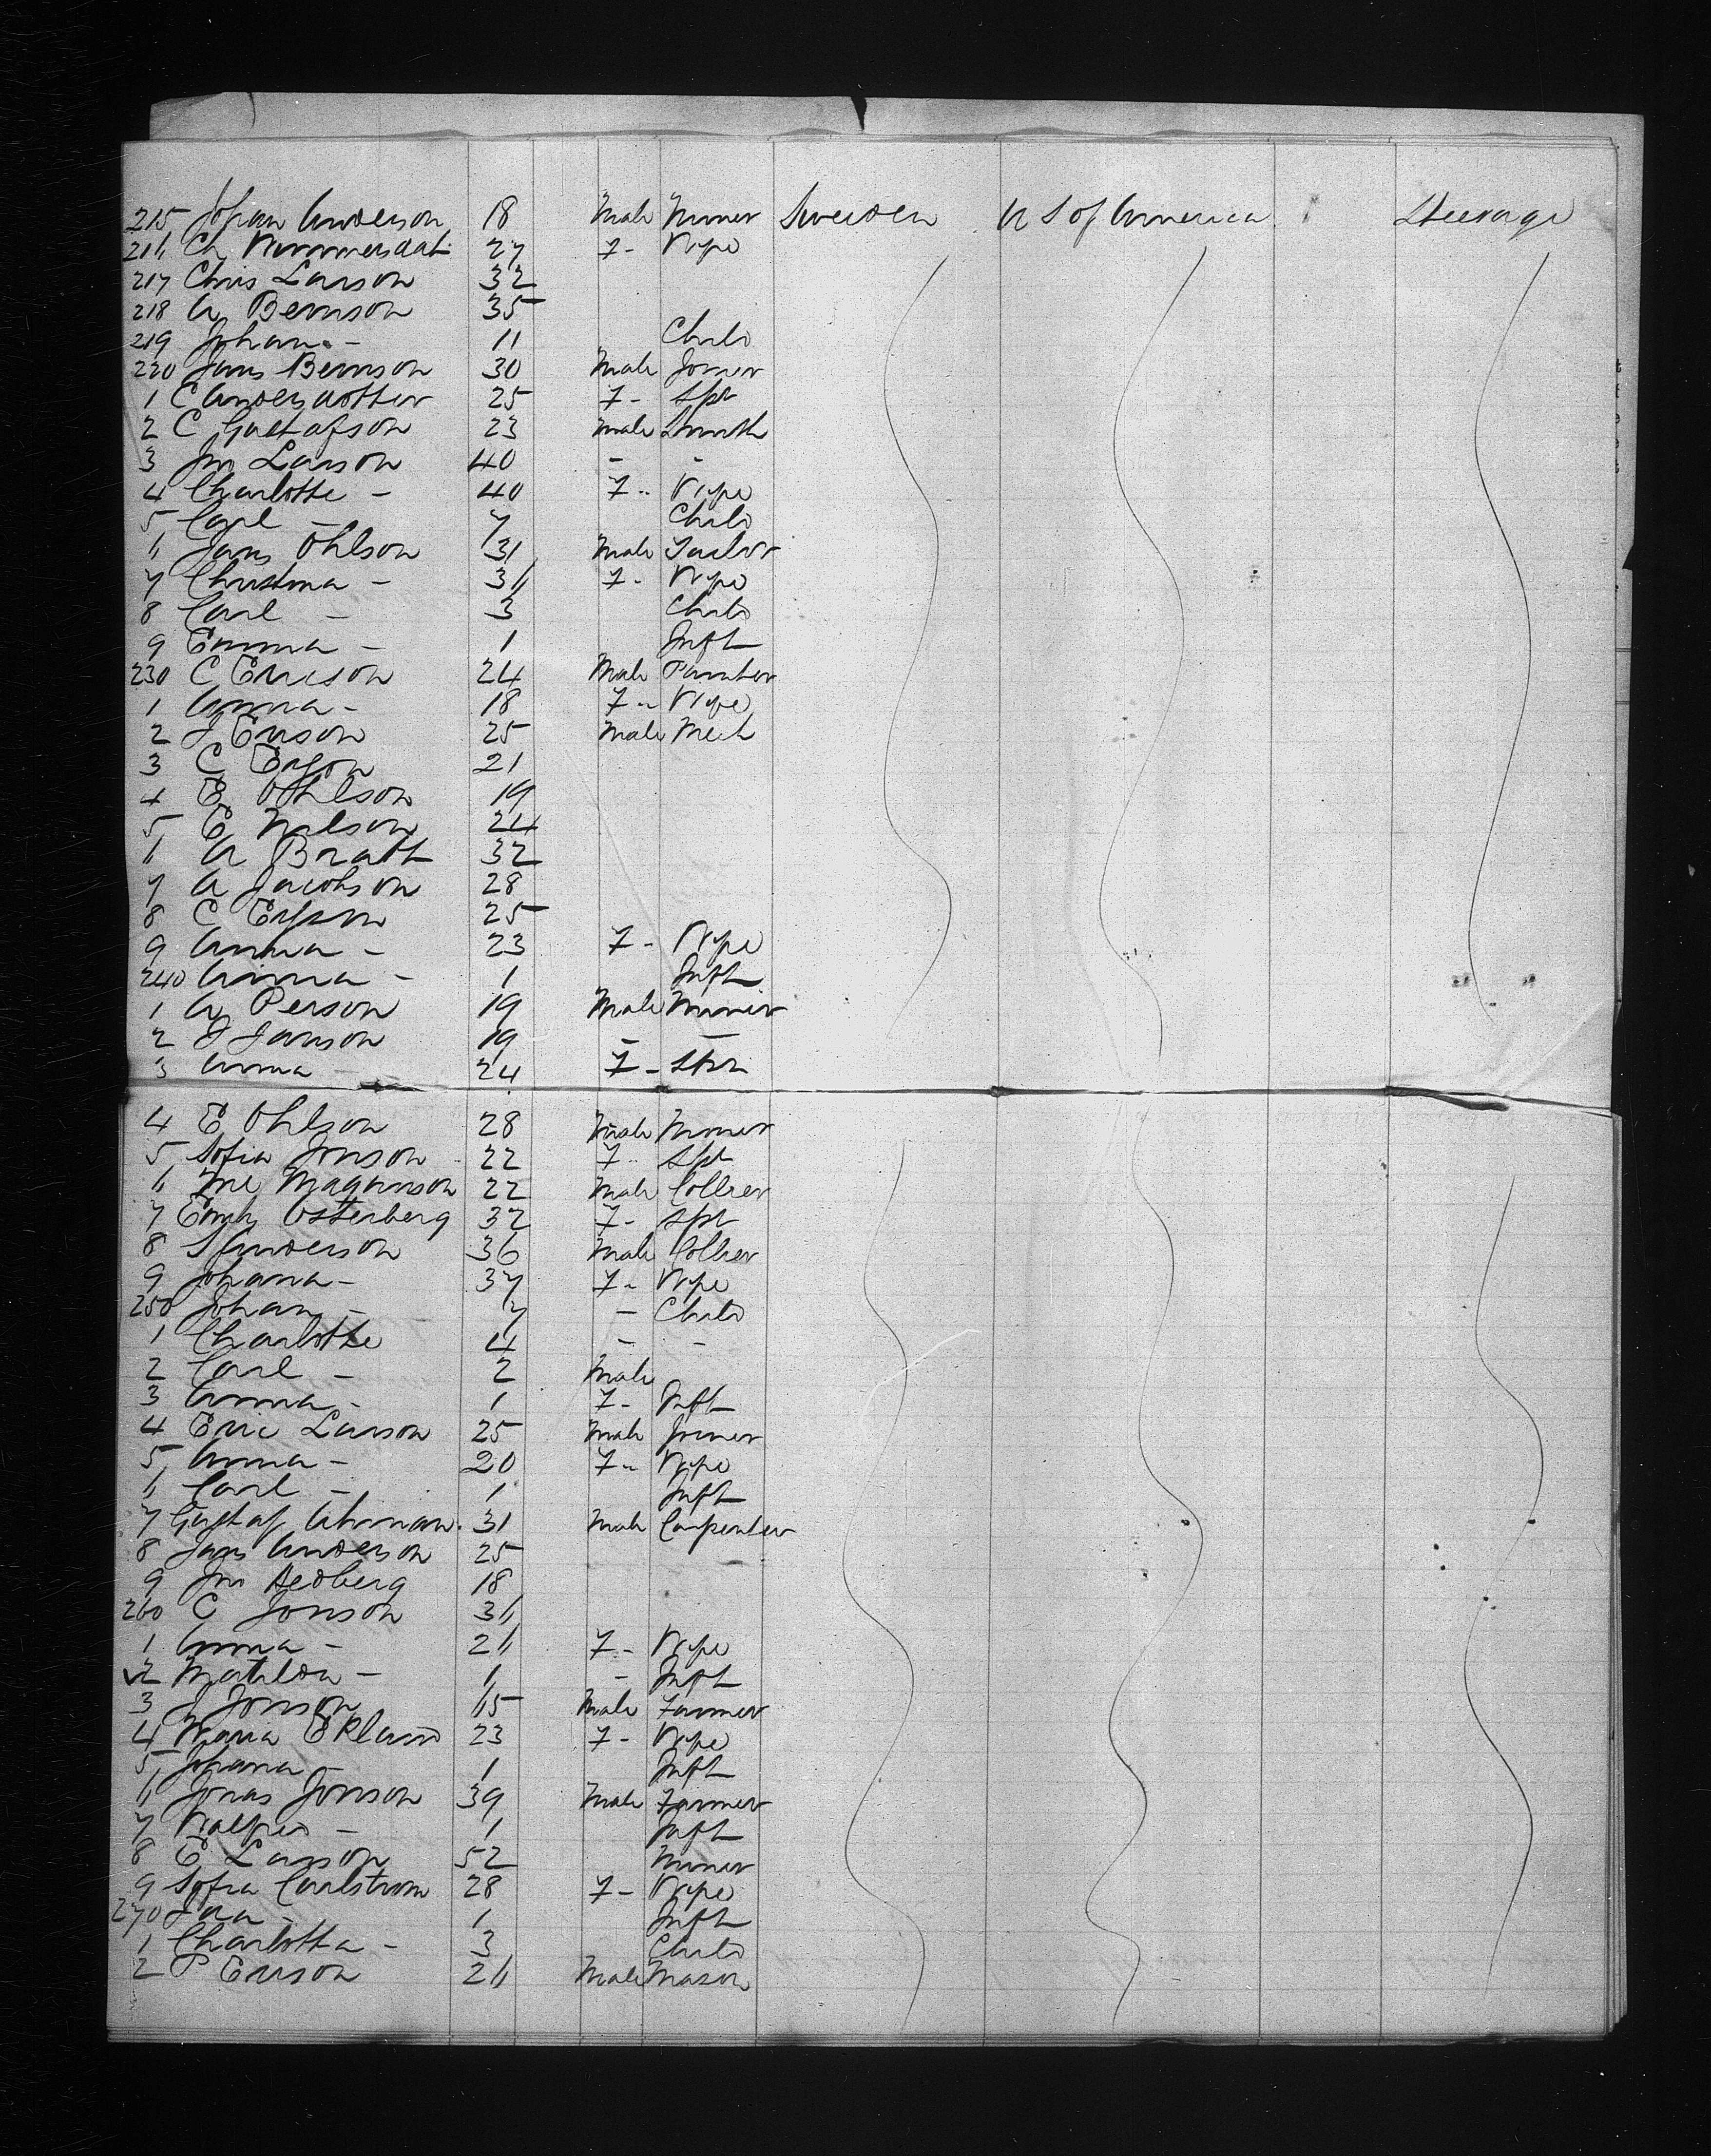 215 Johan Anderson 18 Male Miner Sweden U S of America Steerage
216 Ch 27 F- Wife
217 Chris Larson 32
218 A Bernson 35
219 Johan - 11 Child
220 Jans Bernson 30 Male Joiner
1 C Andersdotter 25 F- Spr
2 C Gustafson 23 Male Smith
3 Jno Larson 40 - -
4 Charlotte - 40 F- Wife
5 Carl - 7 Child
6 Jans Ohlson 31 Male Tailor
7 Christina - 36 F- Wife
8 Carl - 3 Child
9 Emma - 1 Inft
230 C Ericson 24 Male Painter
1 Anna - 18 F- Wife
2 J Erison 25 Male Mech
3 C 21
4 E Ohlson 19
5 E Nilson 24
6 A Bratt 32
7 A Jacobson 28
8 C 25
9 Anna - 23 F- Wife
240 Anna - 1 Inft
1 A Person 19 Male Miner
2 J Janson 19 - -
3 Anna - 24 F-
4 E Ohlson 28 Male Miner
5 Sofia Jonson 22 F- Spr
6 Magnuson 22 Male Collier
7 Emily Osterberg 32 F- Spr
8 S Anderson 36 Male Collier
9 Johana - 37 F- Wife
250 Johan - 7 - Child
1 Charlotte 4 - -
2 Carl - 2 Male
3 Anna - 1 F- Inft
4 Eric Larson 25 Male Joiner
5 Anna - 20 F- Wife
6 Carl - 1 Inft
7 Gustaf Ahrman 31 Male Carpenter
8 Jans Anderson 25
9 Jno Hedberg 18
260 C Jonson 36
1 Anna - 26 F- Wife
2 Matilda - 1 - Inft
3 J Jonson 65 Male Farmer
4 Maria Eklund 23 F- Wife
5 Johana - 1 Inft
6 Jonas Jonson 39 Male Farmer
7 - 1 Inft
8 E Larson 52 Miner
9 Sofia Carlstrom 28 F- Wife
270 Ida - 1 Inft
1 Charlotta - 3 Child
2 P Erison 26 Male Mason